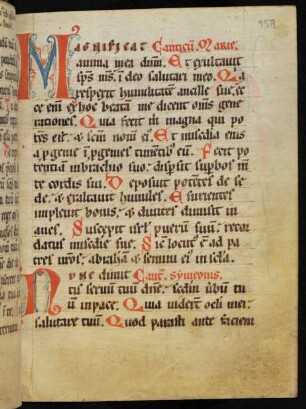 158
Magnificat Canticu. Marie.
anima mea dnm. Et exultauit
sps ms. i deo salutari meo. Qa
respexit humilitate ancille sue. ec
ce eni ex hoc beata me dicent oms gene
rationes. Quia fecit m magna qui po
tes est. & scm nom ei. Et misedia eius
a pgenie i pgenies timetib; eu. Fecit po
tentia inbrachio suo: dispsit supbos m
te cordis sui. Deposuit potetes de se
de. & exaltauit humiles. Esurientes
impleuit bonis. & diuites dimisit in
anes. Suscepit isrl pueru suu. recor
datus misedie sue. Sic locut e ad pa
tres nros. abraha & semini ei in scla.
Nunc dimit Cant. Symeonis.
tis seruu tuu dne. scdm ubu tu
u in pace. Quia uidert ocli mei.
salutare tuu. Quod parasti ante faciem